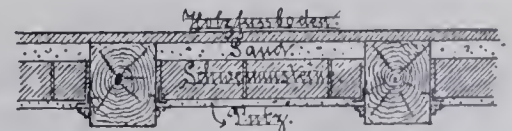 Holzfussboden.
Sand.
Schwemmsteine
Putz.